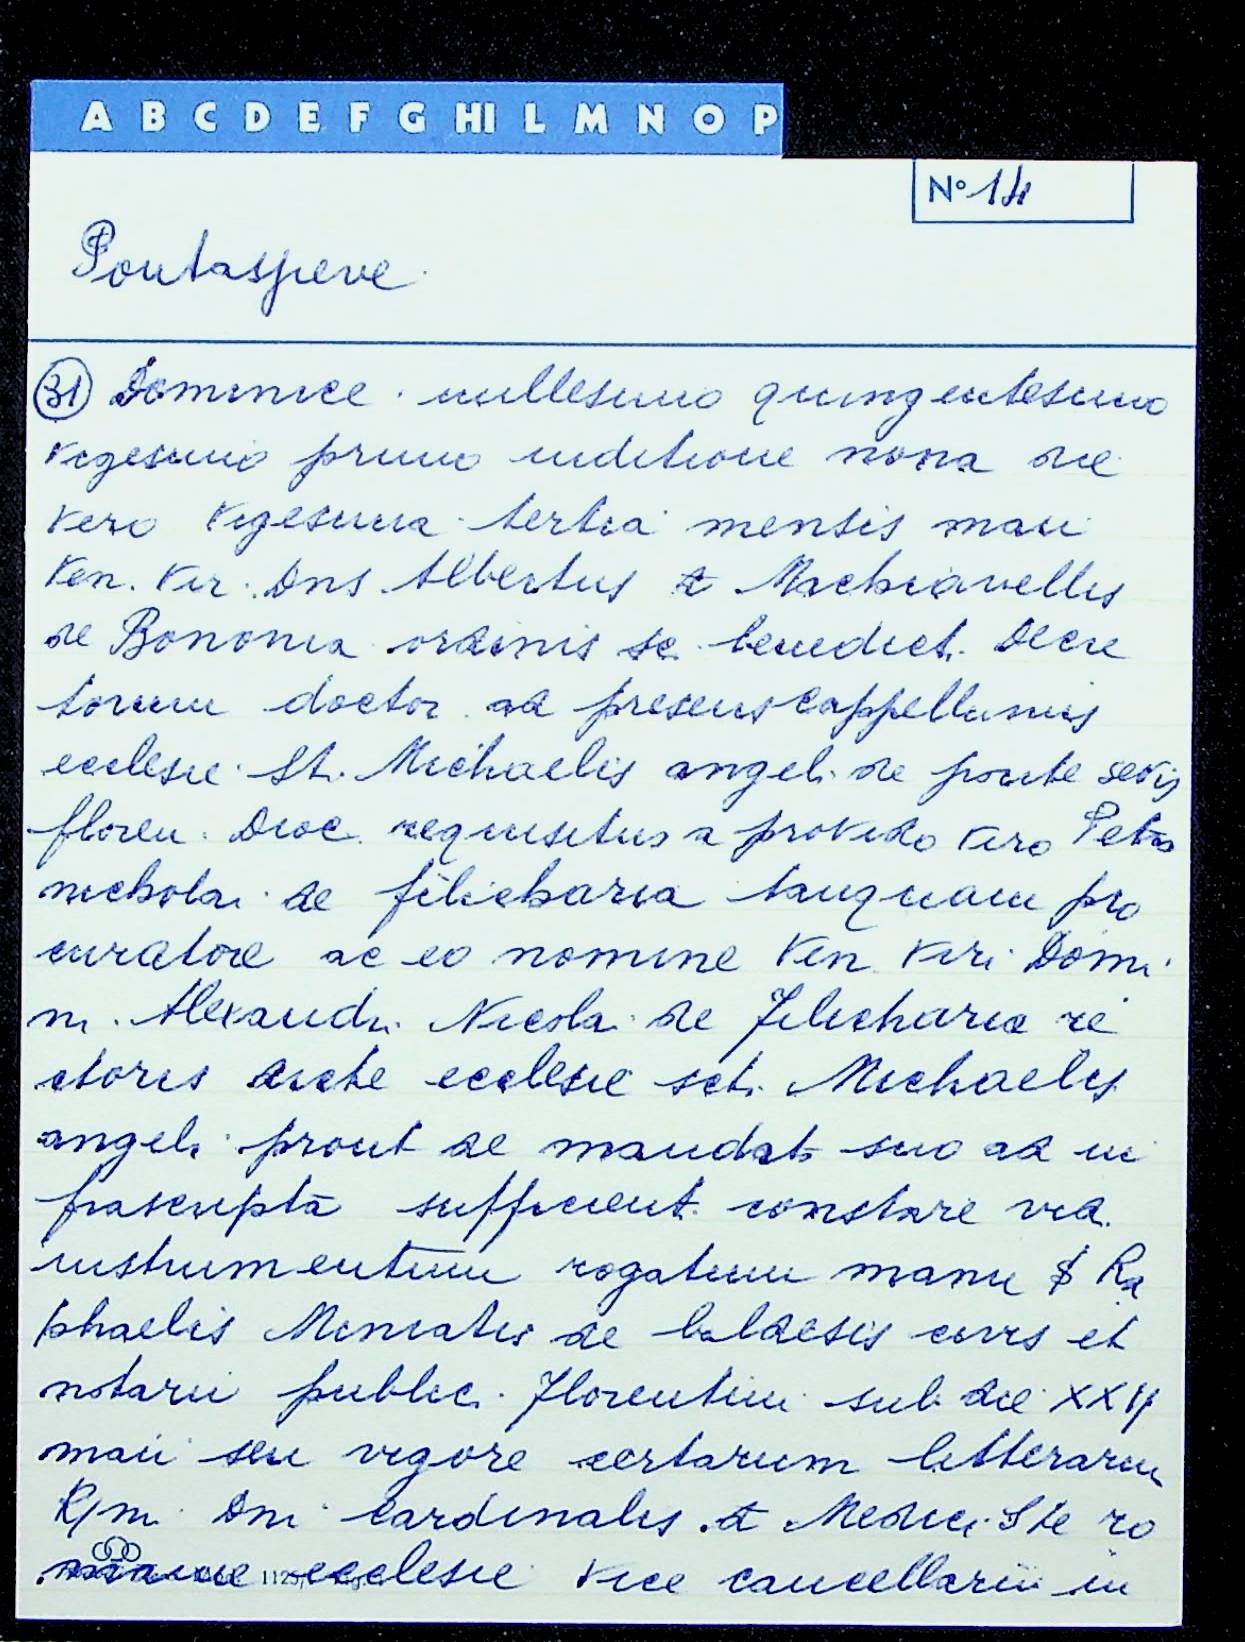 A B C D E F G HI L M N O P
N° 14
Pontassieve
31 Dominice. millesimo quingentesimo
vigesimo primo inditione nona die
vero vigesima tertia mensis maii
Ven. Vir. Dns Albertus de Machiavellis
de Bononia ordinis sc. benedict. Decre
torum doctor ad presens cappellanus
ecclesie St. Michaelis angeli de ponte sevis
floren. Dioc. requisitus a provido viro Petro
nicholai de filicharia tanquam pro
curatore ac eo nomine Ven. Viri Domi
ni. Alexandri Nicolai de Filicharia re
ctoris dicte ecclesie scti. Michaelis
angeli prout de mandato suo ad in
frascripta sufficient. constare vid.
instrumentum rogatum manu S Ra
phaelis Miniatis de baldesis civis et
notarii public. Florentini sub die XXII
maii seu vigore certarum litterarum
R/m Dni Cardinalis de Medici Ste ro
mane ecclesie vice cancellarii in